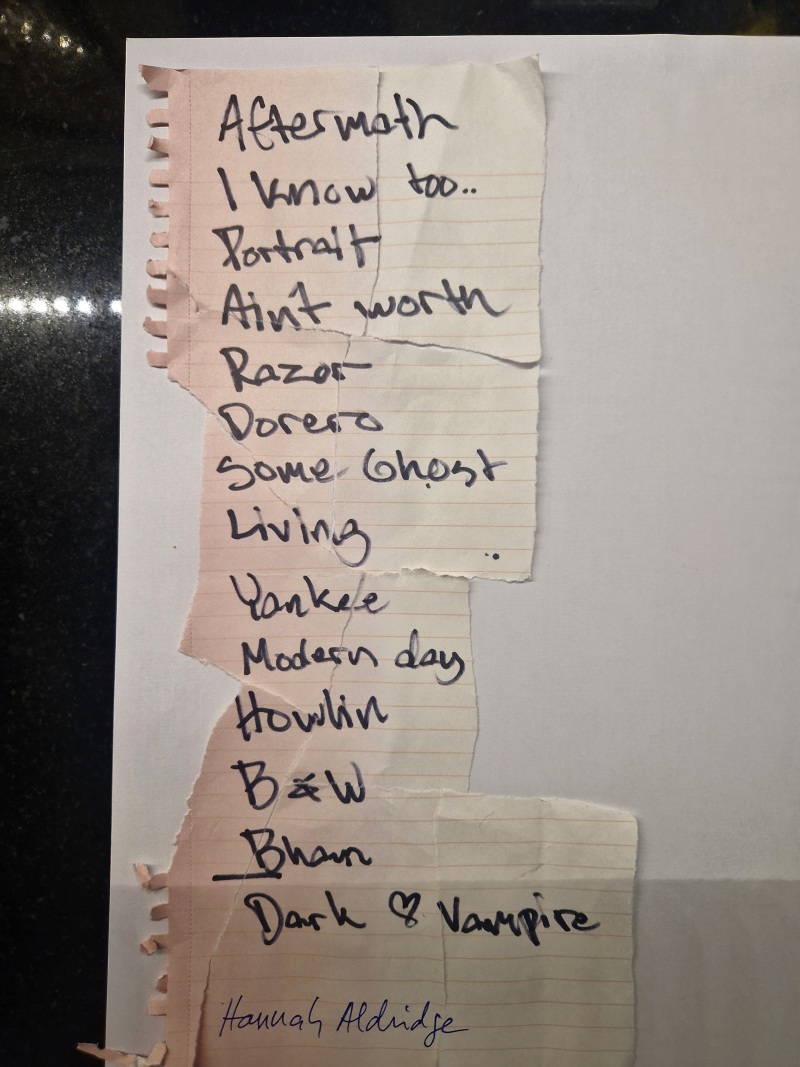 Aftermath
I know too..
Portrait
Ain't worth
Razor
Dorero
Some Ghost
Living
Yankee
Modern day
Howlin
B & W
Bham
Dark ♡ Vampire
Hannah Aldridge